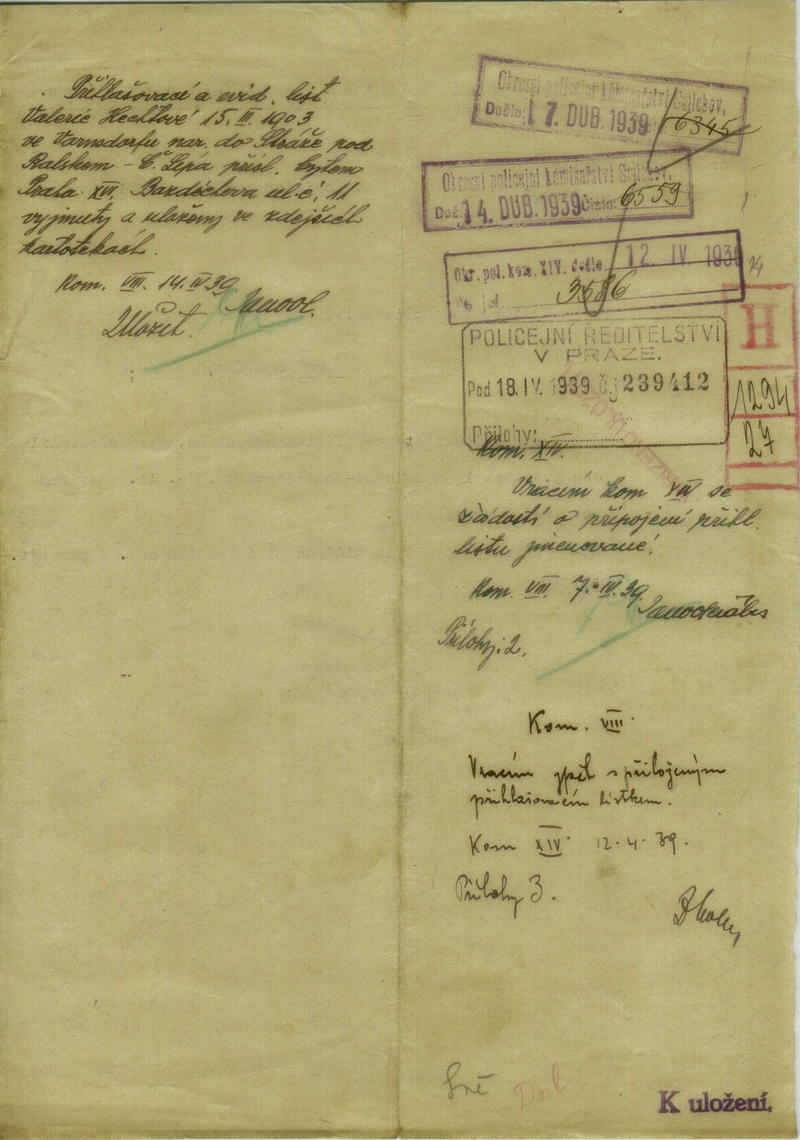 Přihlašovací a evid. list
Valerie Hechtové 15. III. 1903
ve Varnsdorfu nar. do Stráže pod
Ralskem - Č. Lípa přísl. bytem
Praha XVI, ul. č. 11
vyjmuty a uloženy ve zdejších
kartotekách.
Kom. VIII. 14. IV 39
Uložit.
Okresní policejní komisařství Smíchov,
Došlo: 17. DUB. 1939 6345
Okresní policejní komisařství Smíchov,
Doš. 14. DUB. 1939 Číslo: 6559
Okr. pol. kom. XIV. došlo 12. IV. 1939
3586
H
1294
27
POLICEJNÍ ŘEDITELSTVÍ
V PRAZE.
Pod 18. IV. 1939 č.j. 239412
Přílohy:
Kom. XIV.
Vracím kom XIV se
žádostí o připojení přihl.
listu jmenované.
Kom. VIII. 7.-IV. 39.
Přílohy: 2.
Kom. VIII.
Vracím zpět s přiloženým
přihlašovacím lístkem.
Kom XIV. 12. 4. 39.
Přílohy 3.
K uložení.